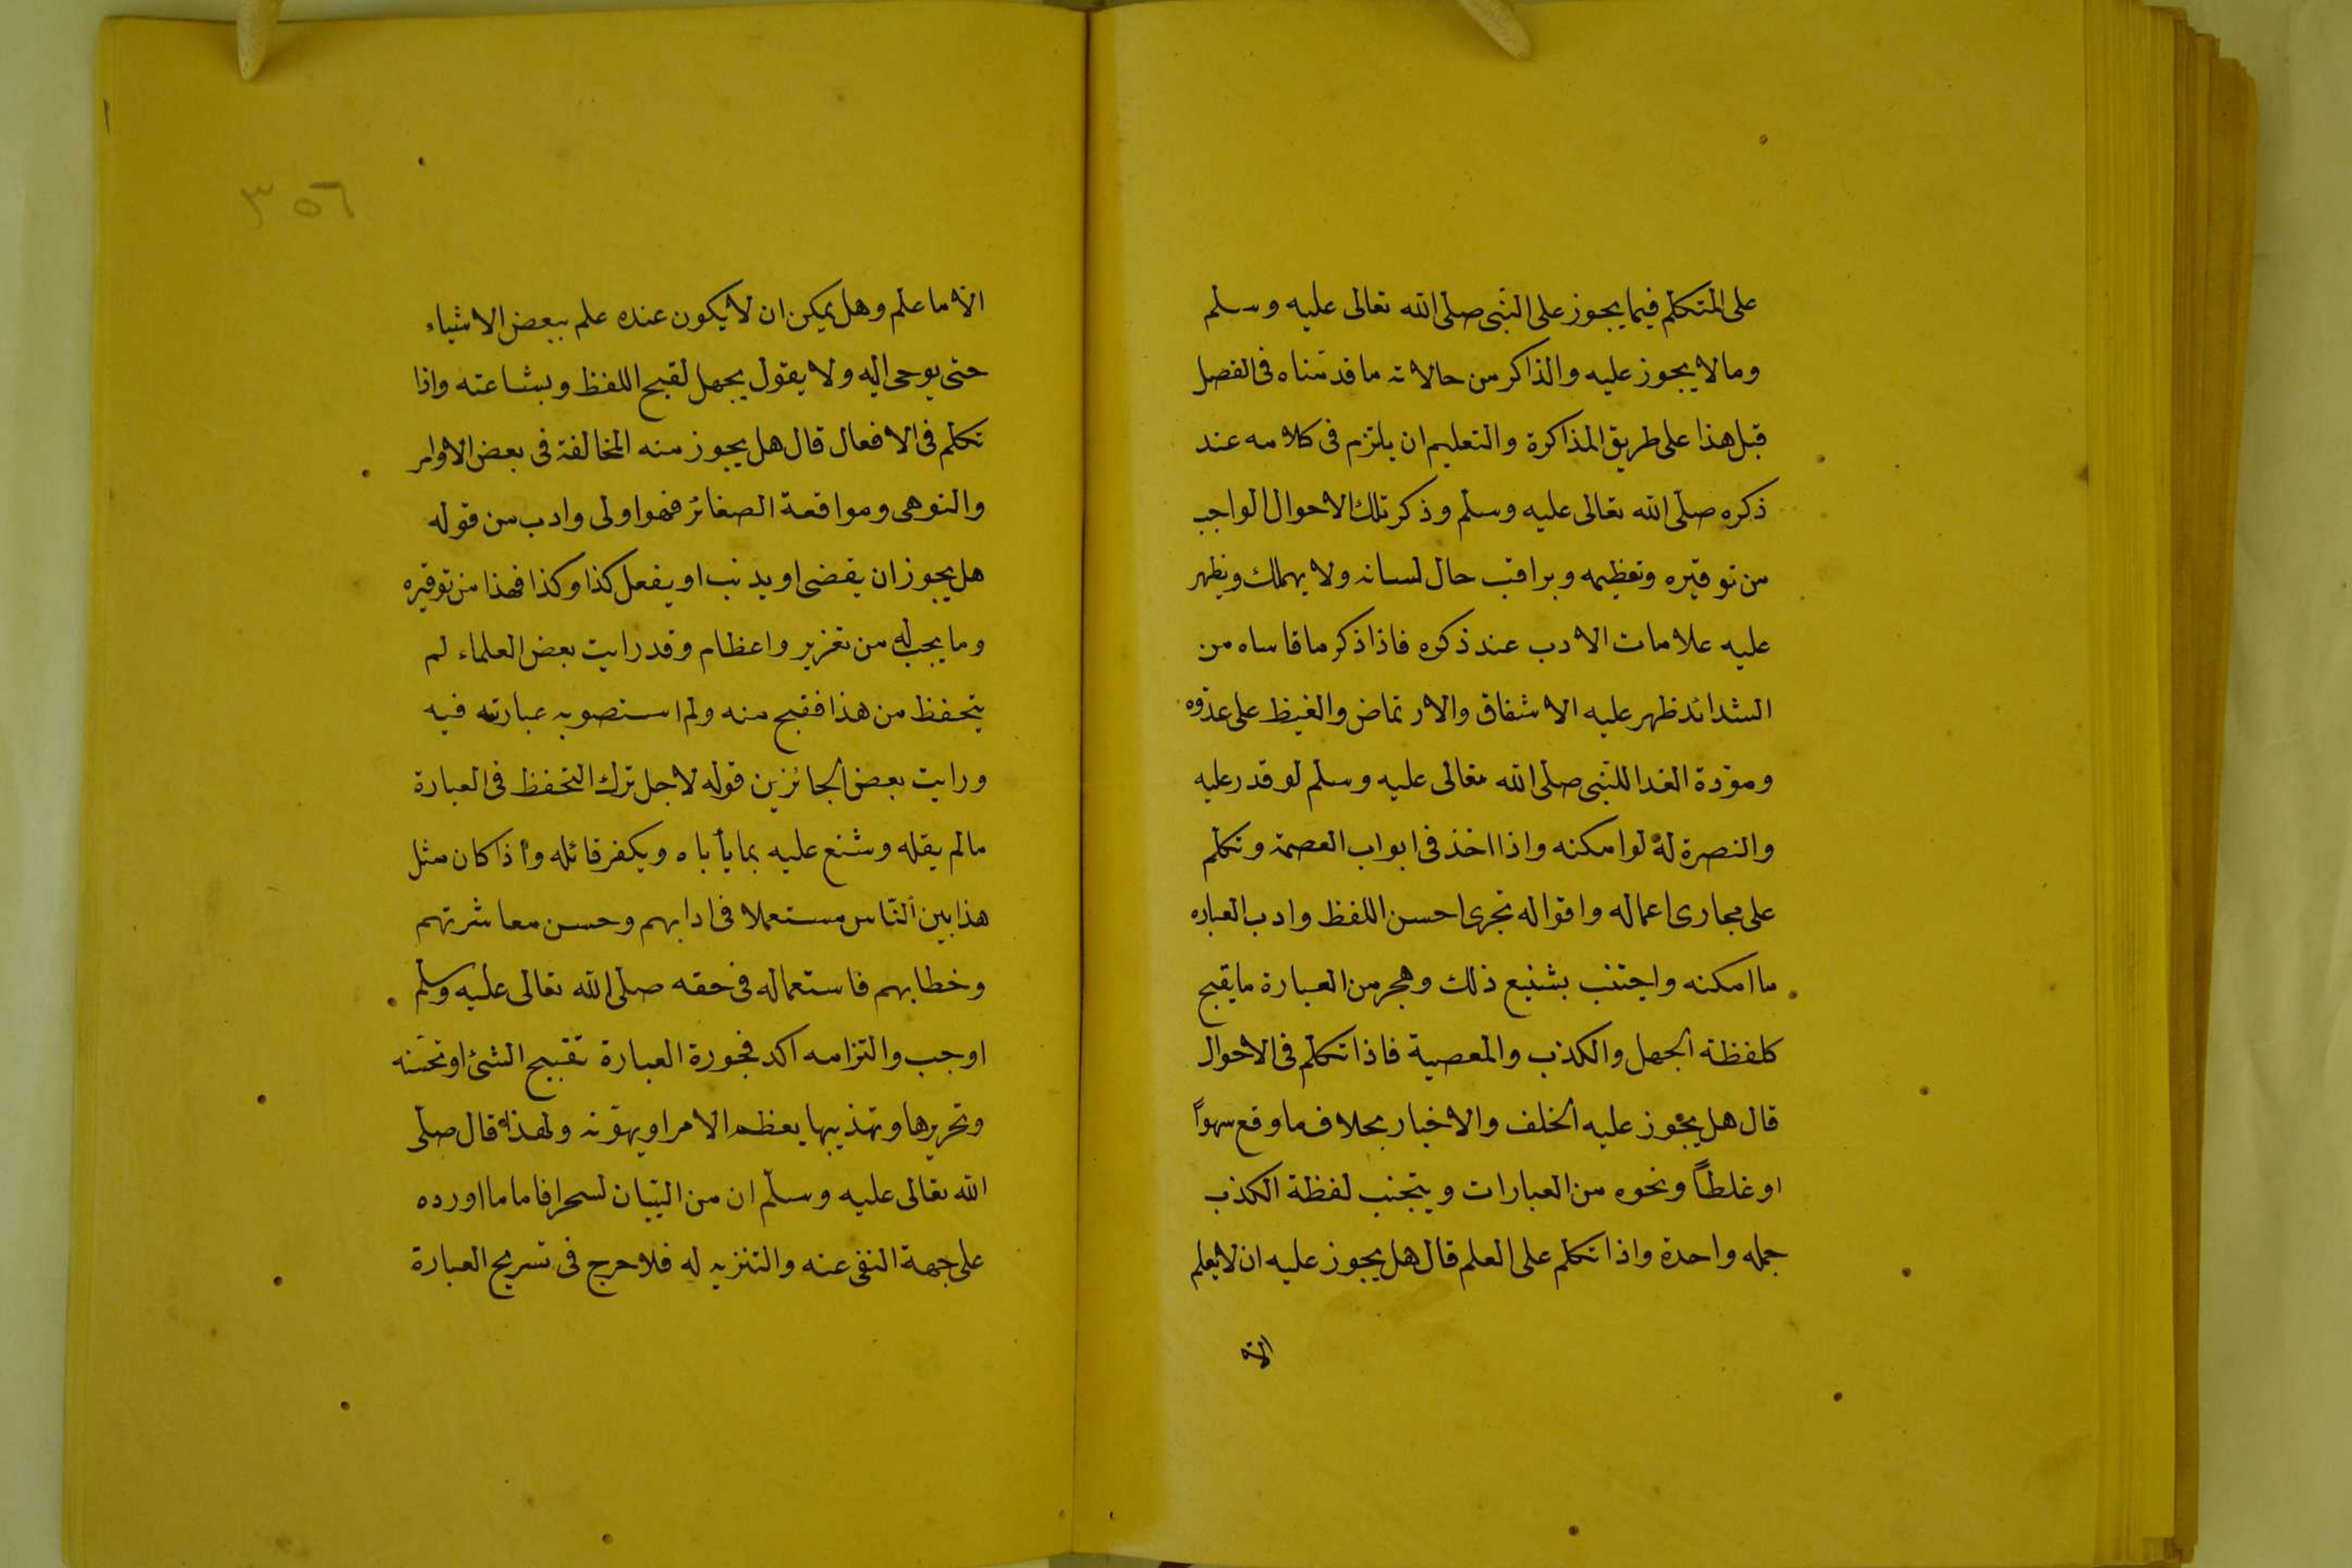 على المتكلم فيما يجوز على النبى صلى الله تعالى عليه وسلم
وما لا يجوز عليه والذاكر من حالاته ما قدمناه فى الفصل
قبل هذا على طريق المذاكرة والتعليم ان يلتزم فى كلامه عند
ذكره صلى الله تعالى عليه وسلم وذكر تلك الاحوال الواجب
من توقيره وتعظيمه ويراقب حال لسانه ولا يهملك ويظهر
عليه علامات الادب عند ذكره فاذا ذكر ما قاساه من
الشدائد ظهر عليه الاشفاق والارتماض والغيظ على عدوه
ومودة الفدا للنبى صلى الله تعالى عليه وسلم لو قدر عليه
والنصرة له لو امكنه واذا اخذ فى ابواب العصمة وتكلم
على مجارى اعماله واقواله تحرى احسن اللفظ وادب العباره
ما امكنه واجتنب بشنيع ذلك وهجر من العبارة ما يقبح
كلفظة الجهل والكذب والمعصية فاذا تكلم فى الاحوال
قال هل يجوز عليه الخلف والاخبار بخلاف ما وقع سهوا
او غلطاً ونحوه من العبارات ويتجنب لفظة الكذب
جمله واحدة واذا تكلم على العلم قال هل يجوز عليه ان لا يعلم
الا
٣٥٦
الا ما علم وهل يمكن ان لا يكون عنده علم ببعض الاشياء
حتى يوحى اليه ولا يقول يجهل لقبح اللفظ وبشاعته واذا
تكلم فى الافعال قال هل يجوز منه المخالفة فى بعض الاوامر
والنوهى ومواقعة الصغائر فهو اولى وادب من قوله
هل يجوز ان يقضى او يذنب او يفعل كذا وكذا فهذا من توقيره
وما يجب له من تعزير واعظام وقد رايت بعض العلماء لم
يتحفظ من هذا فقبح منه ولم استصوب عبارته فيه
ورايت بعض الجائزين قوله لاجل ترك التحفظ فى العبارة
ما لم يقله وشنع عليه بما يأباه ويكفر قائله وأذا كان مثل
هذا بين الناس مستعملا فى ادابهم وحسن معاشرتهم
وخطابهم فاستعماله فى حقه صلى الله تعالى عليه وسلم
اوجب والتزامه اكد فجورة العبارة تقبيح الشئ او تحسنه
وتحريرها وتهذيبها يعظم الامر او يهونه ولهذا قال صلى
الله تعالى عليه وسلم ان من البيان لسحرا فاما ما اورده
على جهة النفى عنه والتنزيه له فلا حرج فى تسريح العبارة